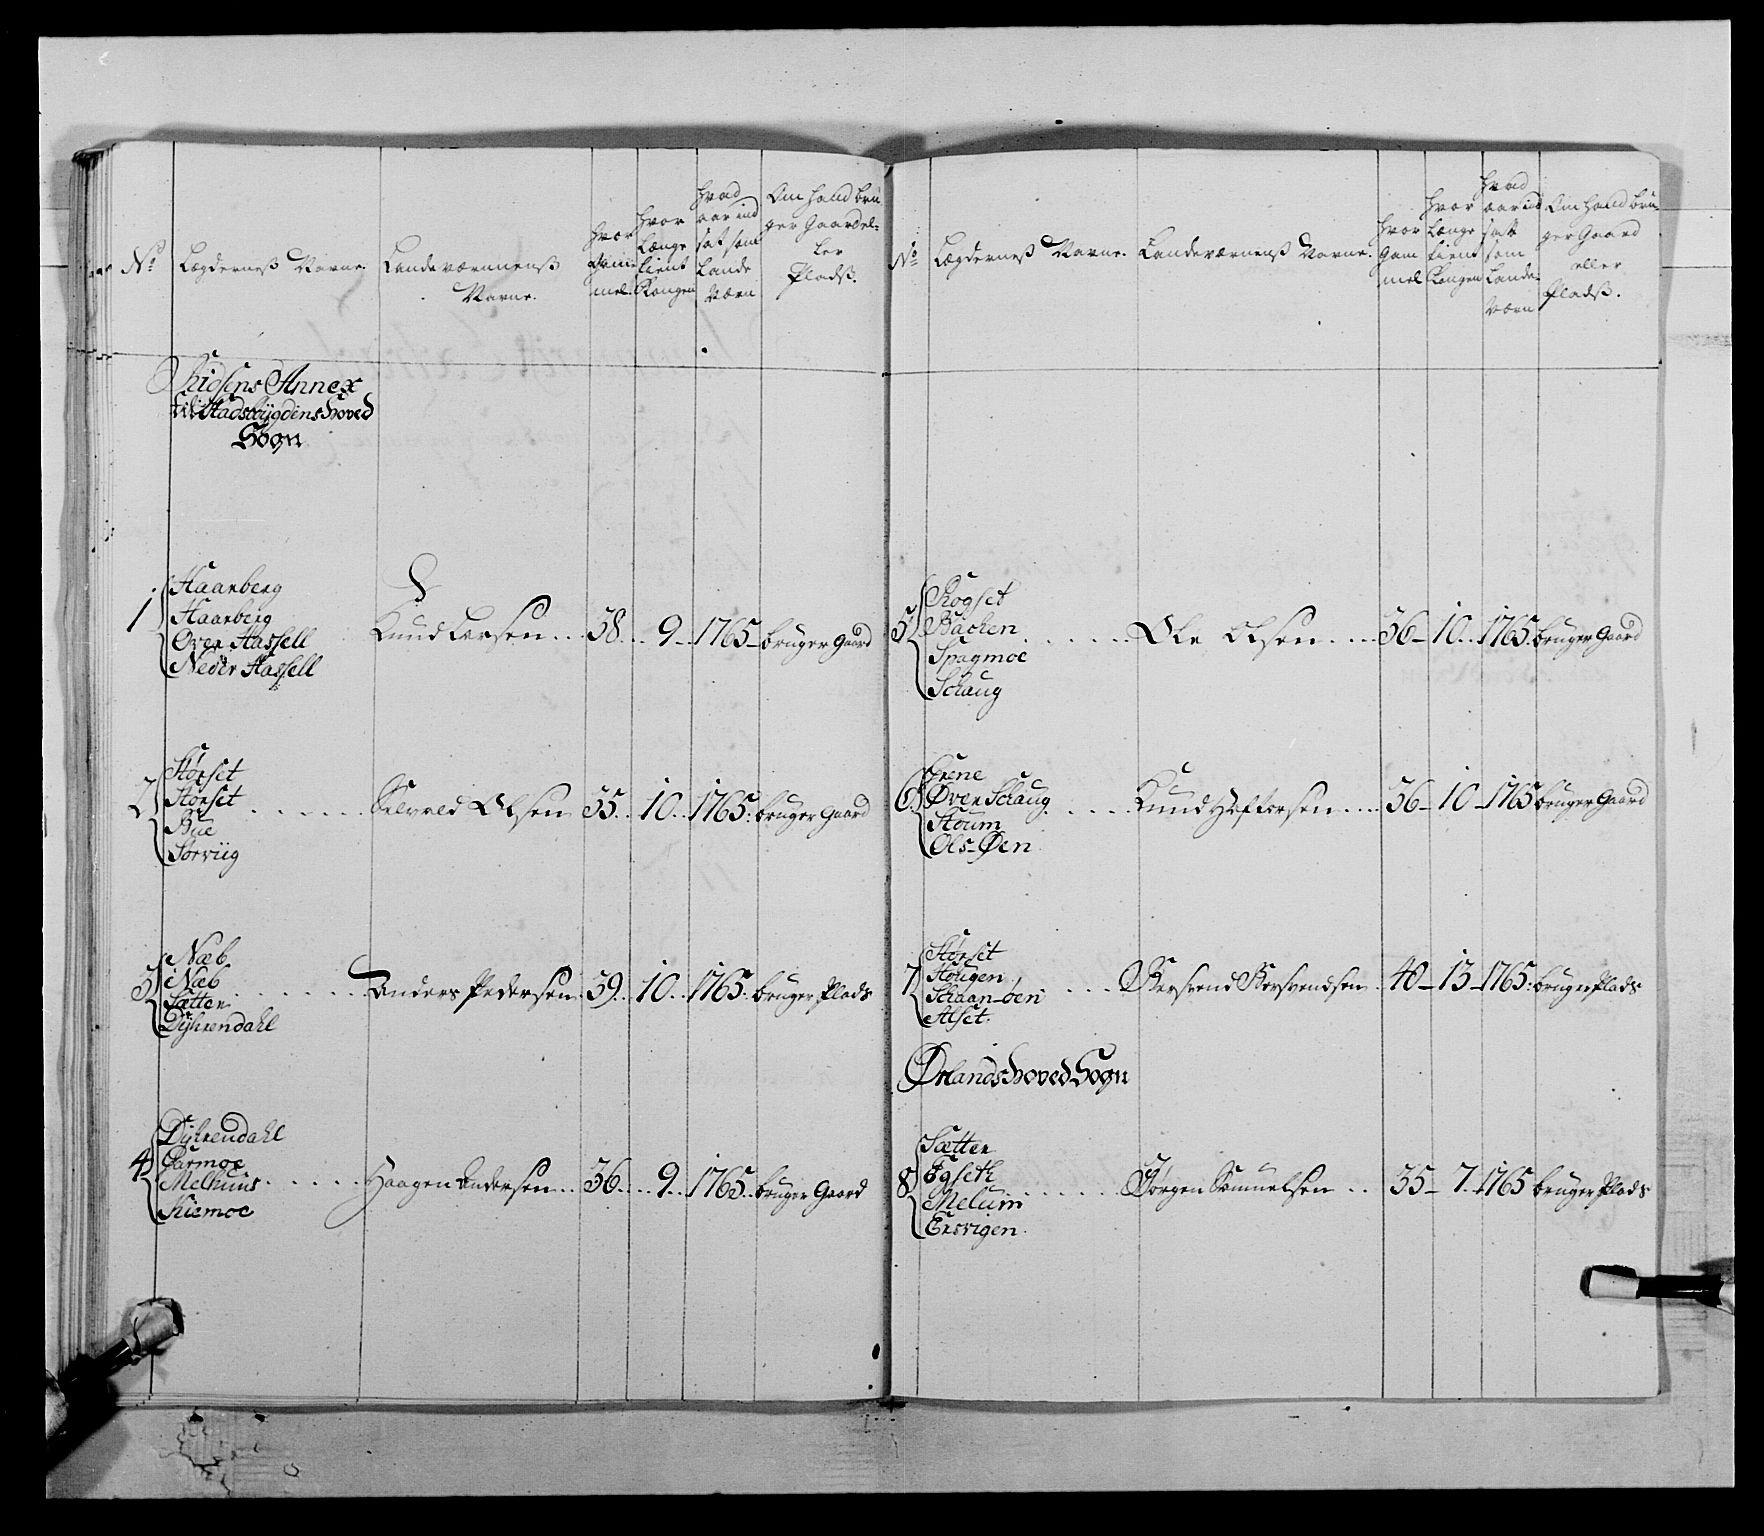 No
Lægderneß Navne.
Landeværnmenß
Navne.
hvor
Gam-
mel.
hvor
Længe
tient
Kongen
hvad
aar ind
sat som
Lande
Værn
Om hand bru
ger Gaard el-
ler
Pladß.
Annex
til Stadsbÿgdens Hoved
Sogn
1
Haarberg
Haarberg
Øver Hassell
Neder Hassell
Knud Larsen... 38... 9_ 1765_ bruger Gaard
2
Størset
Størset
Bue
Sørviig
Olsen 35.. 10.. 1765.: bruger Gaard
3
Næb
Næb
Sætter
Dÿhrendahl
Anders Pedersen. 39.. 10.. 1765.. bruger Plads
4
Dÿhrendahl
Garmoe
Melhuus
Kiemoe
Haagen Andersen.. 36... 9.. 1765.. bruger Gaard
No
Lægderneß Navne.
Landeværnenß Navne.
hvor
Gam
mel
hvor
Længe
tient
Kongen
hvad
aar ind
satt
som
Lande-
Værn
Om hand bru-
ger Gaard
eller
Pladß.
5
Rogset
Bachen
Spagmoe
Schaug
Ole Olsen.... 36_ 10.. 1765. bruger Gaard
6
Grene
Øver Schaug
Stoum
Ols-Øen
Knud Hoftorsen.... 36_ 10_ 1765 bruger Gaard
7
Størset
Hougen
Schaan-øen
Alset.
40_ 13_ 1765.: bruger Plads
Ørlands Hoved Sogn
8
Sætter
Egseth
Melum
Ersvigen.
Jørgen Samuelsen .. 35_ 7.. 1765 bruger Plads